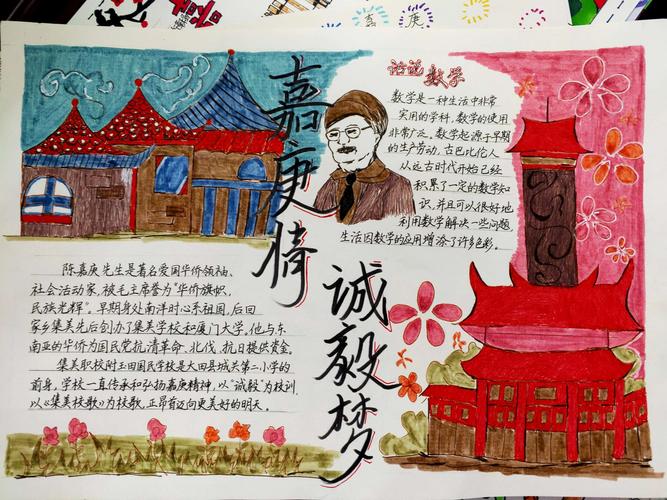 嘉庚情
诚毅梦
话说数学
数学是一种生活中非常
实用的学科，数学的使用
非常广泛，数学起源于早期
的生产劳动，古巴比伦人
从远古时代开始已经
积累了一定的数学知
识，并且可以很好地
利用数学解决一些问题，
生活因数学的应用增添了许多色彩。
陈嘉庚先生是著名爱国华侨领袖、
社会活动家，被毛主席誉为“华侨旗帜，
民族光辉”。早期身处南洋时心系祖国，后回
家乡集美先后创办了集美学校和厦门大学，他与东
南亚的华侨为国民党抗清革命、北伐、抗日提供资金。
集美职校附玉田国民学校是大田县城关第二小学的
前身，学校一直传承和弘扬嘉庚精神，以“诚毅”为校训，
以《集美校歌》为校歌，正昂首迈向更美好的明天。
嘉 庚